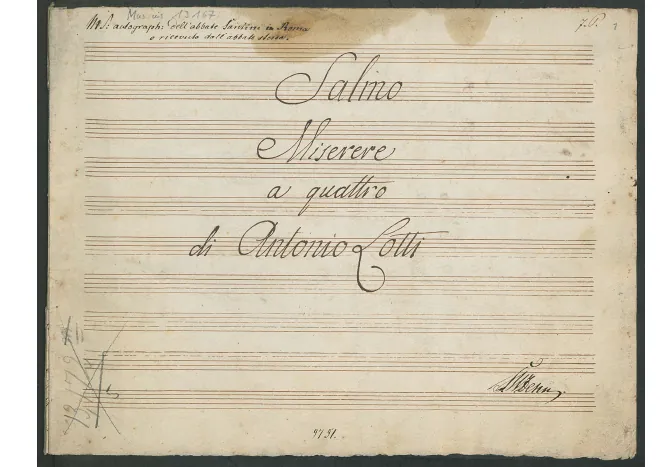 Mus. ms. 13167
MS: autograph: dell'abbate Santini in Roma
e ricevuto dall'abbate stesso.
7. P. 1
Salmo
Miserere
a quattro
di Antonio Lotti
SWDehn
9751.